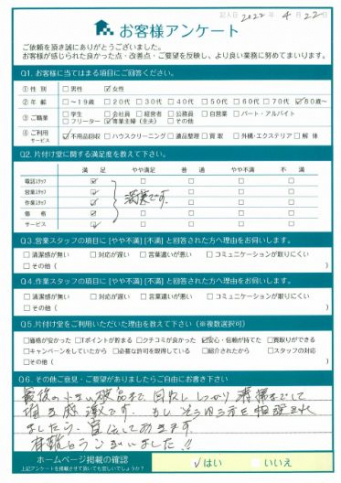 記入日 2022年 4月 22日
お客様アンケート
ご依頼を頂き誠にありがとうございました。
お客様が感じられた良かった点・改善点・ご要望を反映し、より良い業務に努めてまいります。
Q1. お客様に当てはまる項目にご回答ください。
① 性 別 □男性 ☑女性
② 年 齢 □～19歳 □20代 □30代 □40代 □50代 □60代 □70代 ☑80歳～
③ ご職業 □学生 □会社員 □経営者 □公務員 □自営業 □パート・アルバイト
□フリーター ☑専業主婦(主夫) □その他
④ ご利用サービス ☑不用品回収 □ハウスクリーニング □遺品整理 □買取 □外構・エクステリア □解体
Q2. 片付け堂に関する満足度を教えて下さい。
満 足 やや満足 普 通 やや不満 不 満
電話スタッフ ☑ □ □ □ □
営業スタッフ ☑ □ □ □ □
作業スタッフ ☑ 満点です。 □ □ □
価 格 ☑ □ □ □ □
サービス ☑ □ □ □ □
Q3. 営業スタッフの項目に [やや不満] [不満] と回答された方へ理由をお伺いします。
□清潔感が無い □対応が遅い □言葉遣いが悪い □コミュニケーションが取りにくい
□その他 ( )
Q4. 作業スタッフの項目に [やや不満] [不満] と回答された方へ理由をお伺いします。
□清潔感が無い □対応が遅い □言葉遣いが悪い □コミュニケーションが取りにくい
□その他 ( )
Q5. 片付け堂をご利用いただいた理由を教えて下さい(※複数選択可)
□価格が安かった □Tポイントが貯まる □クチコミが良かった ☑安心・信頼が持てた □買取りができる
□キャンペーンをしていたから □必要な許可を取得している □紹介されたから □スタッフの対応
□その他 ( )
Q6. その他ご意見・ご要望がありましたらご自由にお書き下さい
最後の小さい 品まで、回収し しっかり 清掃までして
ました
ありがとうございました!!
ホームページ掲載の確認
上記アンケートを掲載させて頂いても宜しいでしょうか?
☑はい いいえ